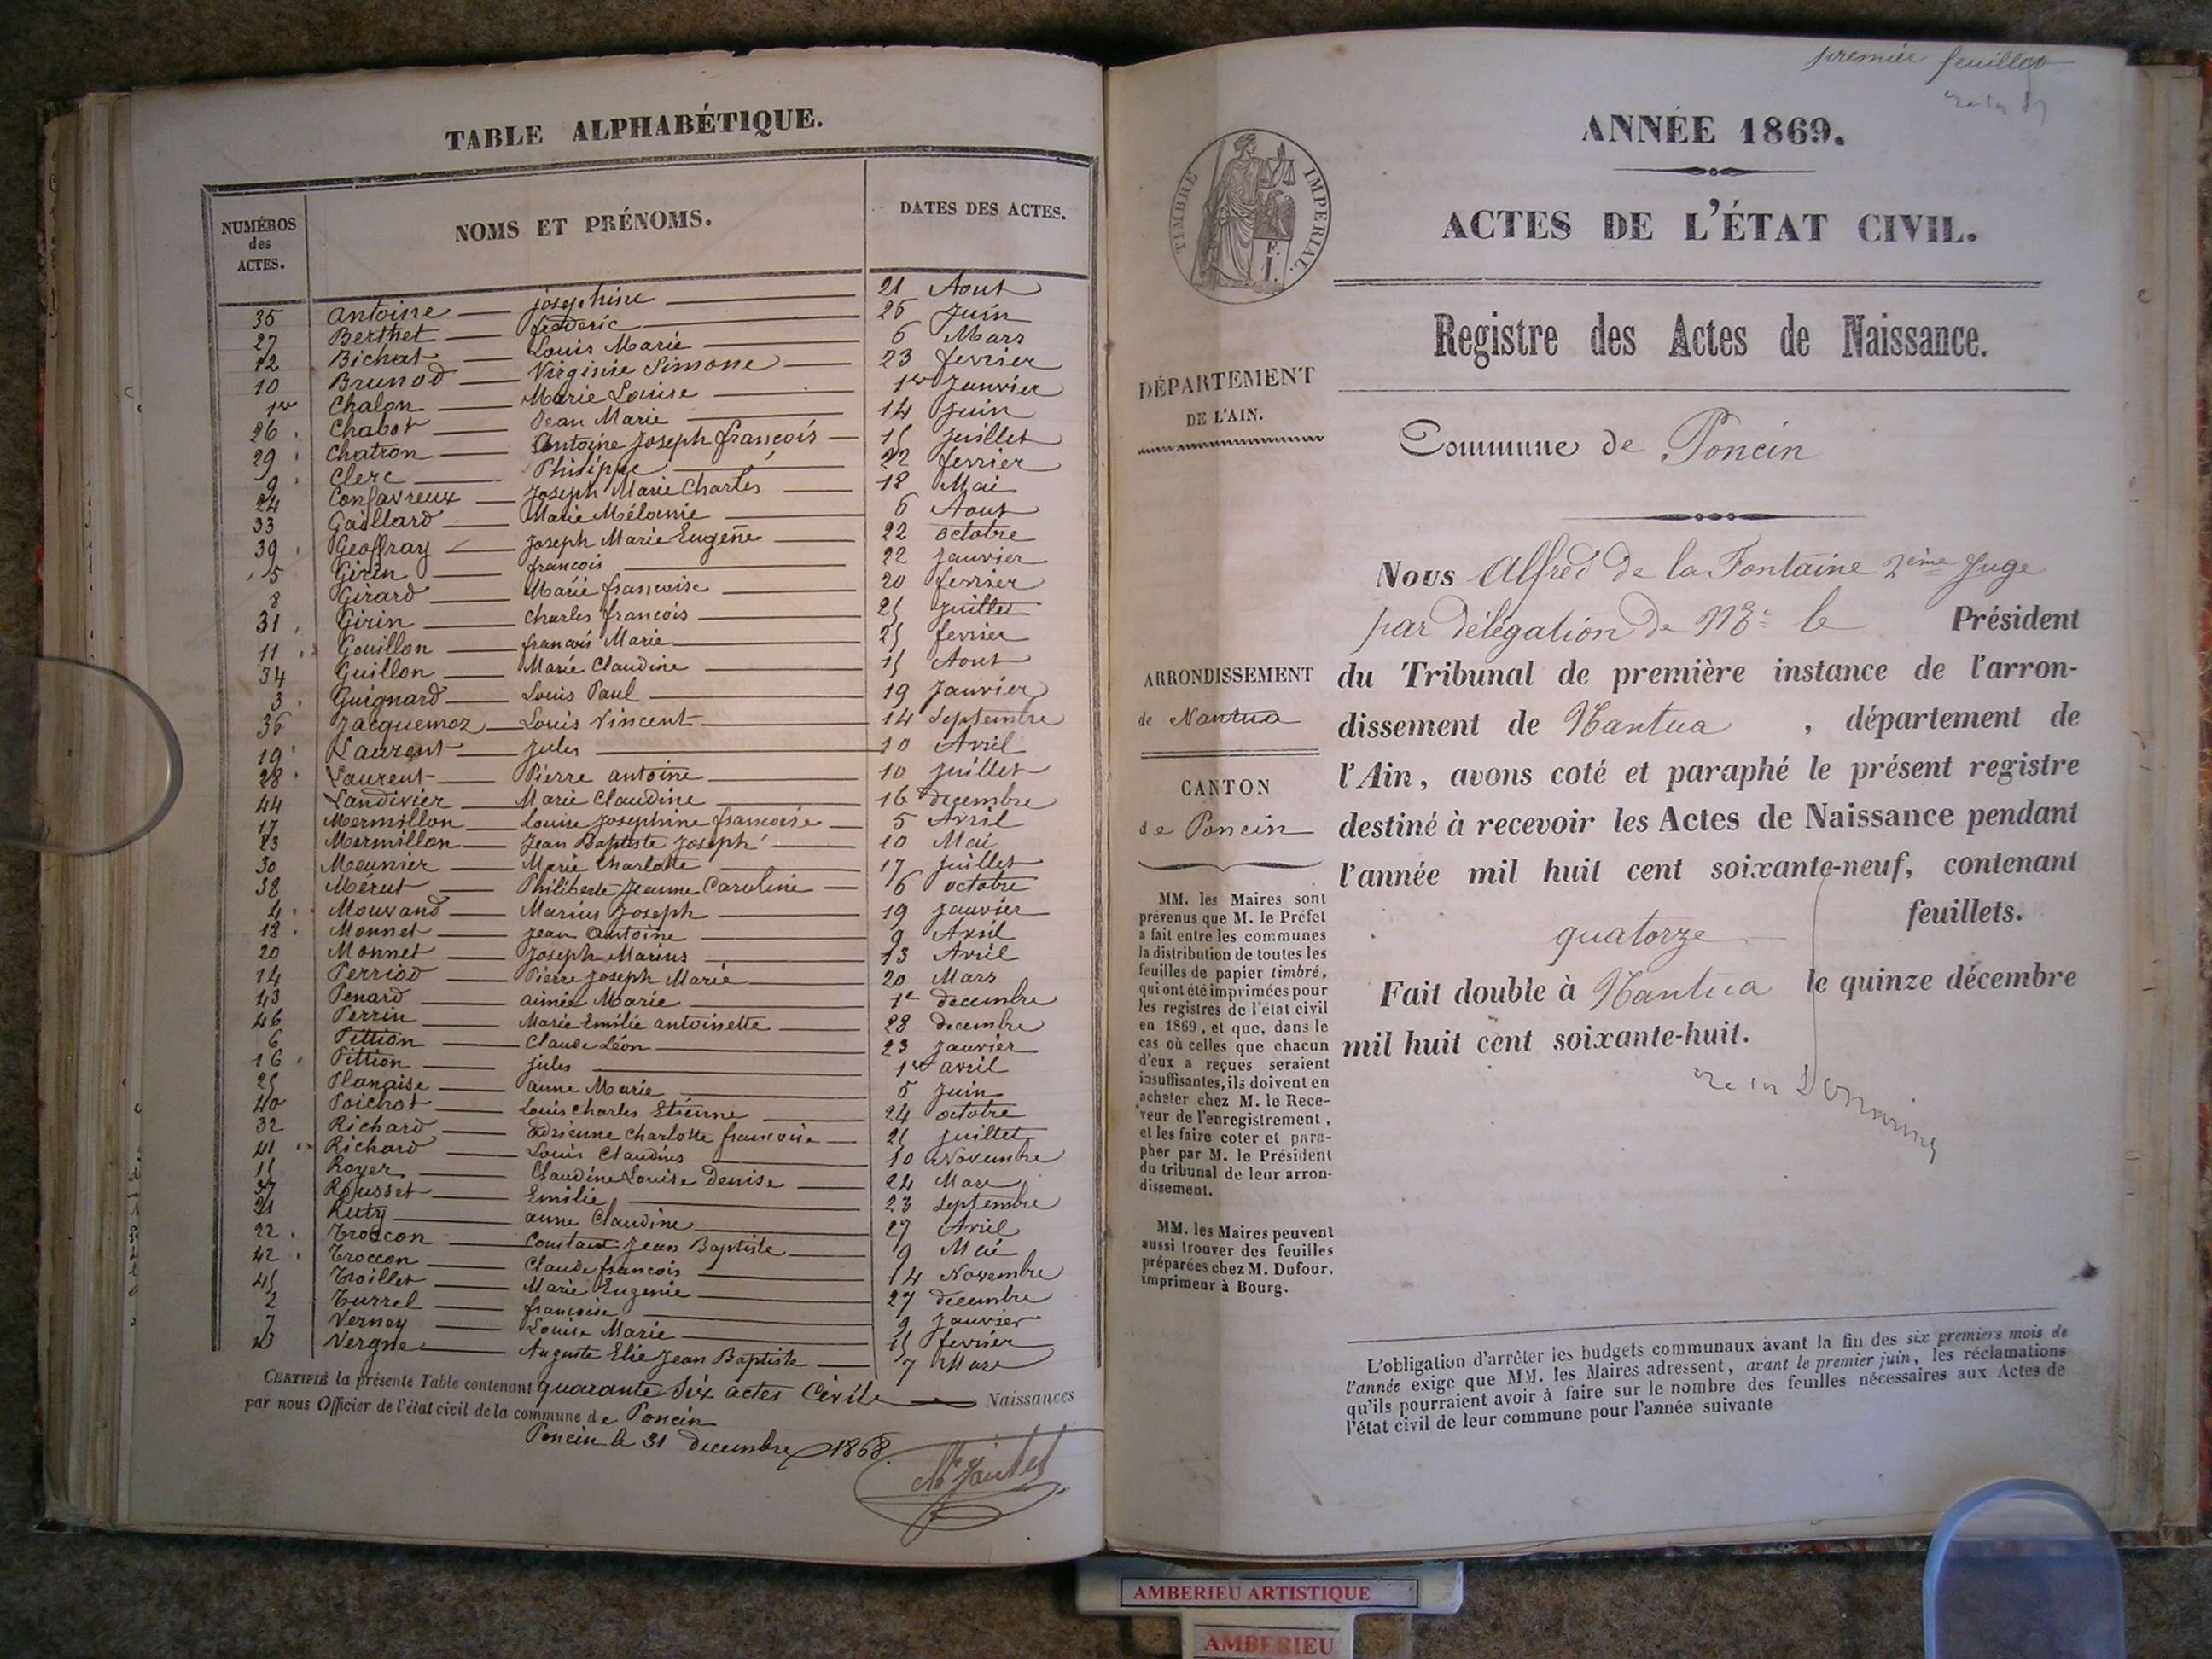 TABLE ALPHABÉTIQUE.
NUMÉROS des ACTES. NOMS ET PRÉNOMS. DATES DES ACTES.
35 Antoine — josephine — 21 Aout
27 Berthet — frédéric — 26 Juin
12 Bichat — Louis Marie — 6 Mars
10 Brunod — Virginie Simone — 23 fevrier
1er Chalon — Marie Louise — 1er Janvier
26 Chabot — Jean Marie — 14 Juin
29 Chatron — Antoine Joseph françois — 15 Juillet
9 Clerc — Philippe — 22 fevrier
24 Confavreux — Joseph Marie Charles — 18 Mai
33 Gaillard — Marie Mélanie — 6 Aout
39 Geoffray — Joseph Marie Eugène — 22 octobre
5 Girin — francois — 22 janvier
8 Girard — Marie francoise — 20 fevrier
31 Girin — Charles francois — 25 Juillet
11 Gouillon — francois Marie — 25 fevrier
34 Guillon — Marie Claudine — 15 Aout
3 Guignard — Louis Paul — 19 Janvier
36 Jacquemoz — Louis Vincent — 14 Septembre
19 Laurent — Jules — 10 Avril
28 Laurent — Pierre antoine — 10 Juillet
44 Landivier — Marie Claudine — 16 decembre
17 Mermillon — Louise Josephine francoise — 5 Avril
23 Mermillon — Jean Baptiste Joseph — 10 Mai
30 Meunier — Marie Charlotte — 17 Juillet
38 Mérut — Philiberte Jeanne Caroline — 6 octobre
4 Mouvand — Marius Joseph — 19 Janvier
18 Monnet — Jean Antoine — 9 Avril
20 Monnet — Joseph Marius — 13 Avril
14 Perriod — Pierre Joseph Marie — 20 Mars
43 Penard — aimée Marie — 1er decembre
46 Perrin — Marie Emilie antoinette — 28 decembre
6 Pittion — Claude Léon — 23 janvier
16 Pittion — jules — 1er avril
25 Planaise — anne Marie — 5 Juin
40 Poichot — Louis Charles Etienne — 24 octobre
32 Richard — Adrienne Charlotte francoise — 25 Juillet
41 Richard — Louis Claudius — 10 Novembre
15 Royer — Claudine Louise Denise — 24 Mars
37 Rousset — Emilie — 23 Septembre
21 Ruty — anne Claudine — 27 Avril
22 Troccon — Constant Jean Baptiste — 9 Mai
42 Troccon — Claude francois — 14 Novembre
45 Troillet — Marie Eugenie — 27 decembre
2 Turrel — francoise — 9 Janvier
7 Verney — Louise Marie — 15 fevrier
13 Vergne — Auguste Elie Jean Baptiste — 7 Mars
CERTIFIÉ la présente Table contenant quarante Six actes Civils — Naissances
par nous Officier de l'état civil de la commune de Poncin
Poncin le 31 decembre 1868.
premier feuillet
ANNÉE 1869.
TIMBRE IMPERIAL.
ACTES DE L'ÉTAT CIVIL.
Registre des Actes de Naissance.
DÉPARTEMENT
DE L'AIN.
Commune de Poncin
Nous Alfred de la Fontaine 2ème Juge
par délégation de Mr le Président
du Tribunal de première instance de l'arron-
dissement de Nantua , département de
l'Ain, avons coté et paraphé le présent registre
destiné à recevoir les Actes de Naissance pendant
l'année mil huit cent soixante-neuf, contenant
quatorze feuillets.
Fait double à Nantua le quinze décembre
mil huit cent soixante-huit.
ARRONDISSEMENT
de Nantua
CANTON
de Poncin
MM. les Maires sont
prévenus que M. le Préfet
a fait entre les communes
la distribution de toutes les
feuilles de papier timbré,
qui ont été imprimées pour
les registres de l'état civil
en 1869, et que, dans le
cas où celles que chacun
d'eux a reçues seraient
insuffisantes, ils doivent en
acheter chez M. le Rece-
veur de l'enregistrement,
et les faire coter et para-
pher par M. le Président
du tribunal de leur arron-
dissement.
MM. les Maires peuvent
aussi trouver des feuilles
préparées chez M. Dufour,
imprimeur à Bourg.
L'obligation d'arrêter les budgets communaux avant la fin des six premiers mois de
l'année exige que MM. les Maires adressent, avant le premier juin, les réclamations
qu'ils pourraient avoir à faire sur le nombre des feuilles nécessaires aux Actes de
l'état civil de leur commune pour l'année suivante
AMBERIEU ARTISTIQUE
AMBERIEU